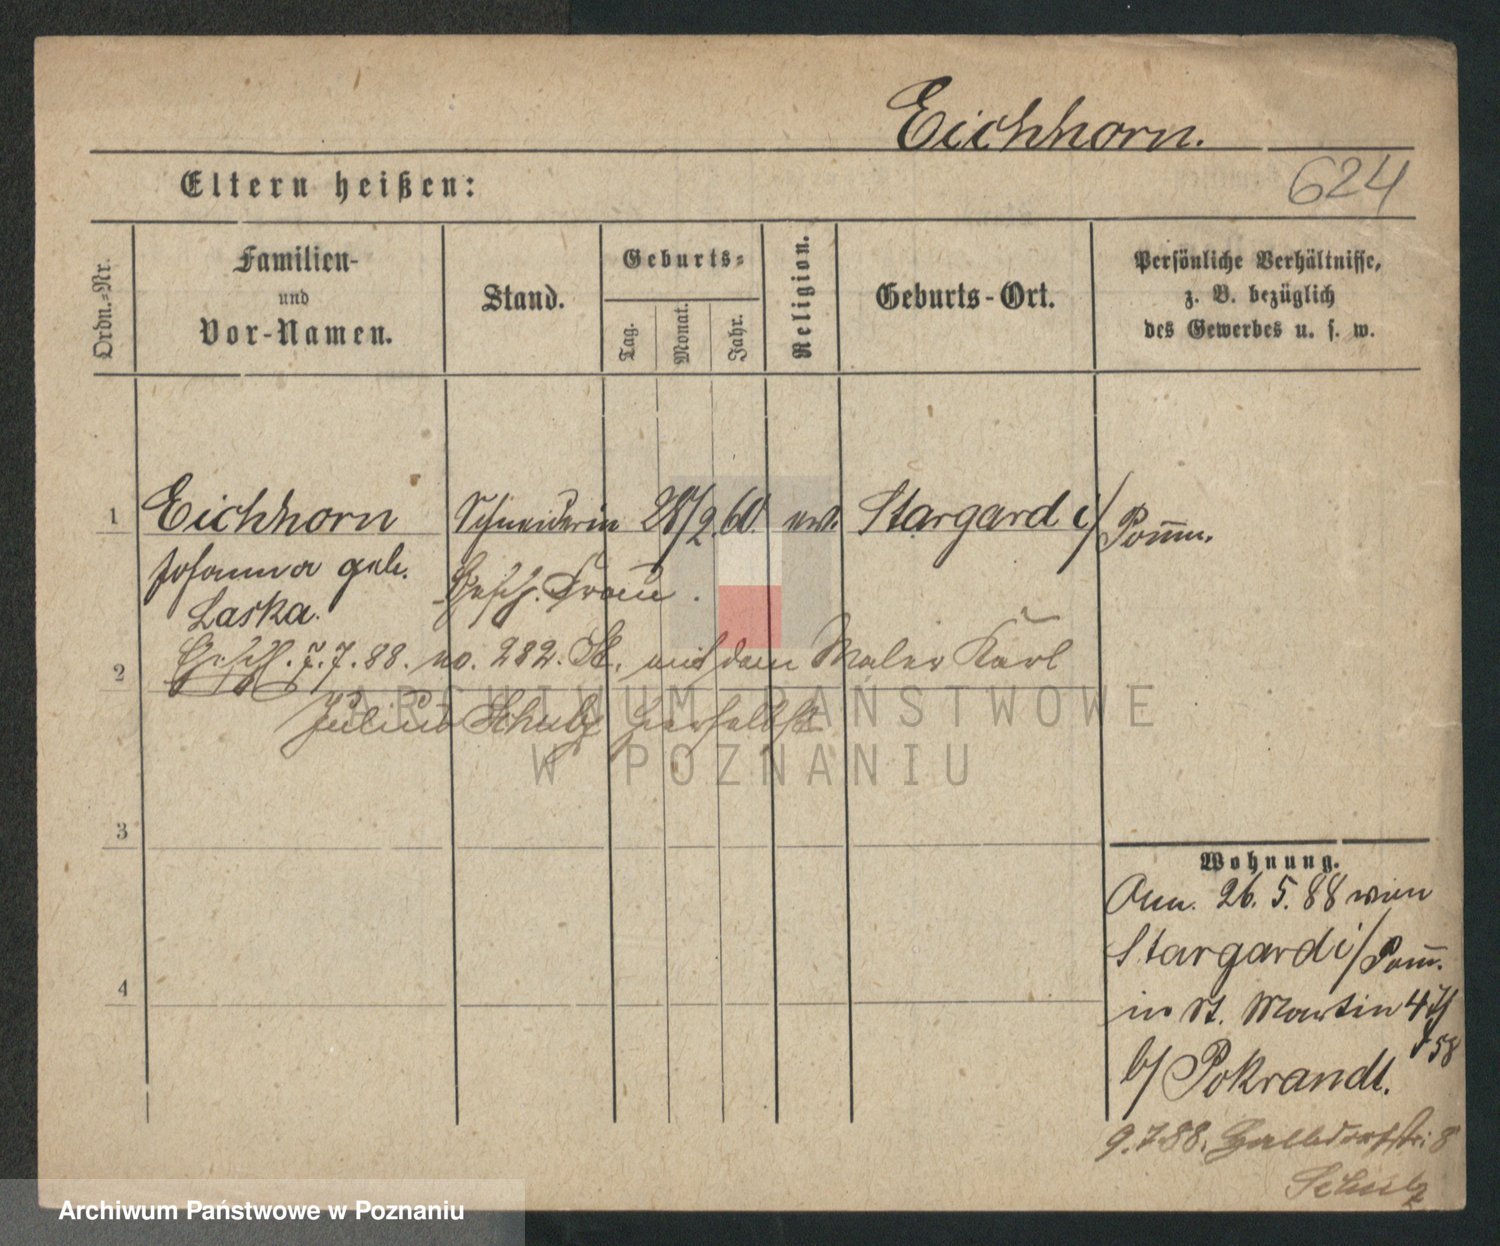 Eichhorn.
624
Eltern heißen:
Ordn.-Nr.
Familien-
und
Vor-Namen.
Stand.
Geburts-
Tag.
Monat.
Jahr.
Religion.
Geburts-Ort.
Persönliche Verhältnisse,
z. B. bezüglich
des Gewerbes u. s. w.
1 Eichhorn Schneiderin 28/2. 60. ev. Stargard i/Pomm.
Johanna geb. Gesch. Frau.
Laska.
2 7.7.88. no. 282. St. mit dem Maler Karl
Julius Schulz hierselbst
3
4
Wohnung.
Ann. 26. 5. 88 von
Stargard i/Pom.
in St. Martin
58
b/ Pokrandt.
9.7.88. Halbdorfstr. 8
Schulz
ARCHIWUM PAŃSTWOWE
W POZNANIU
Archiwum Państwowe w Poznaniu